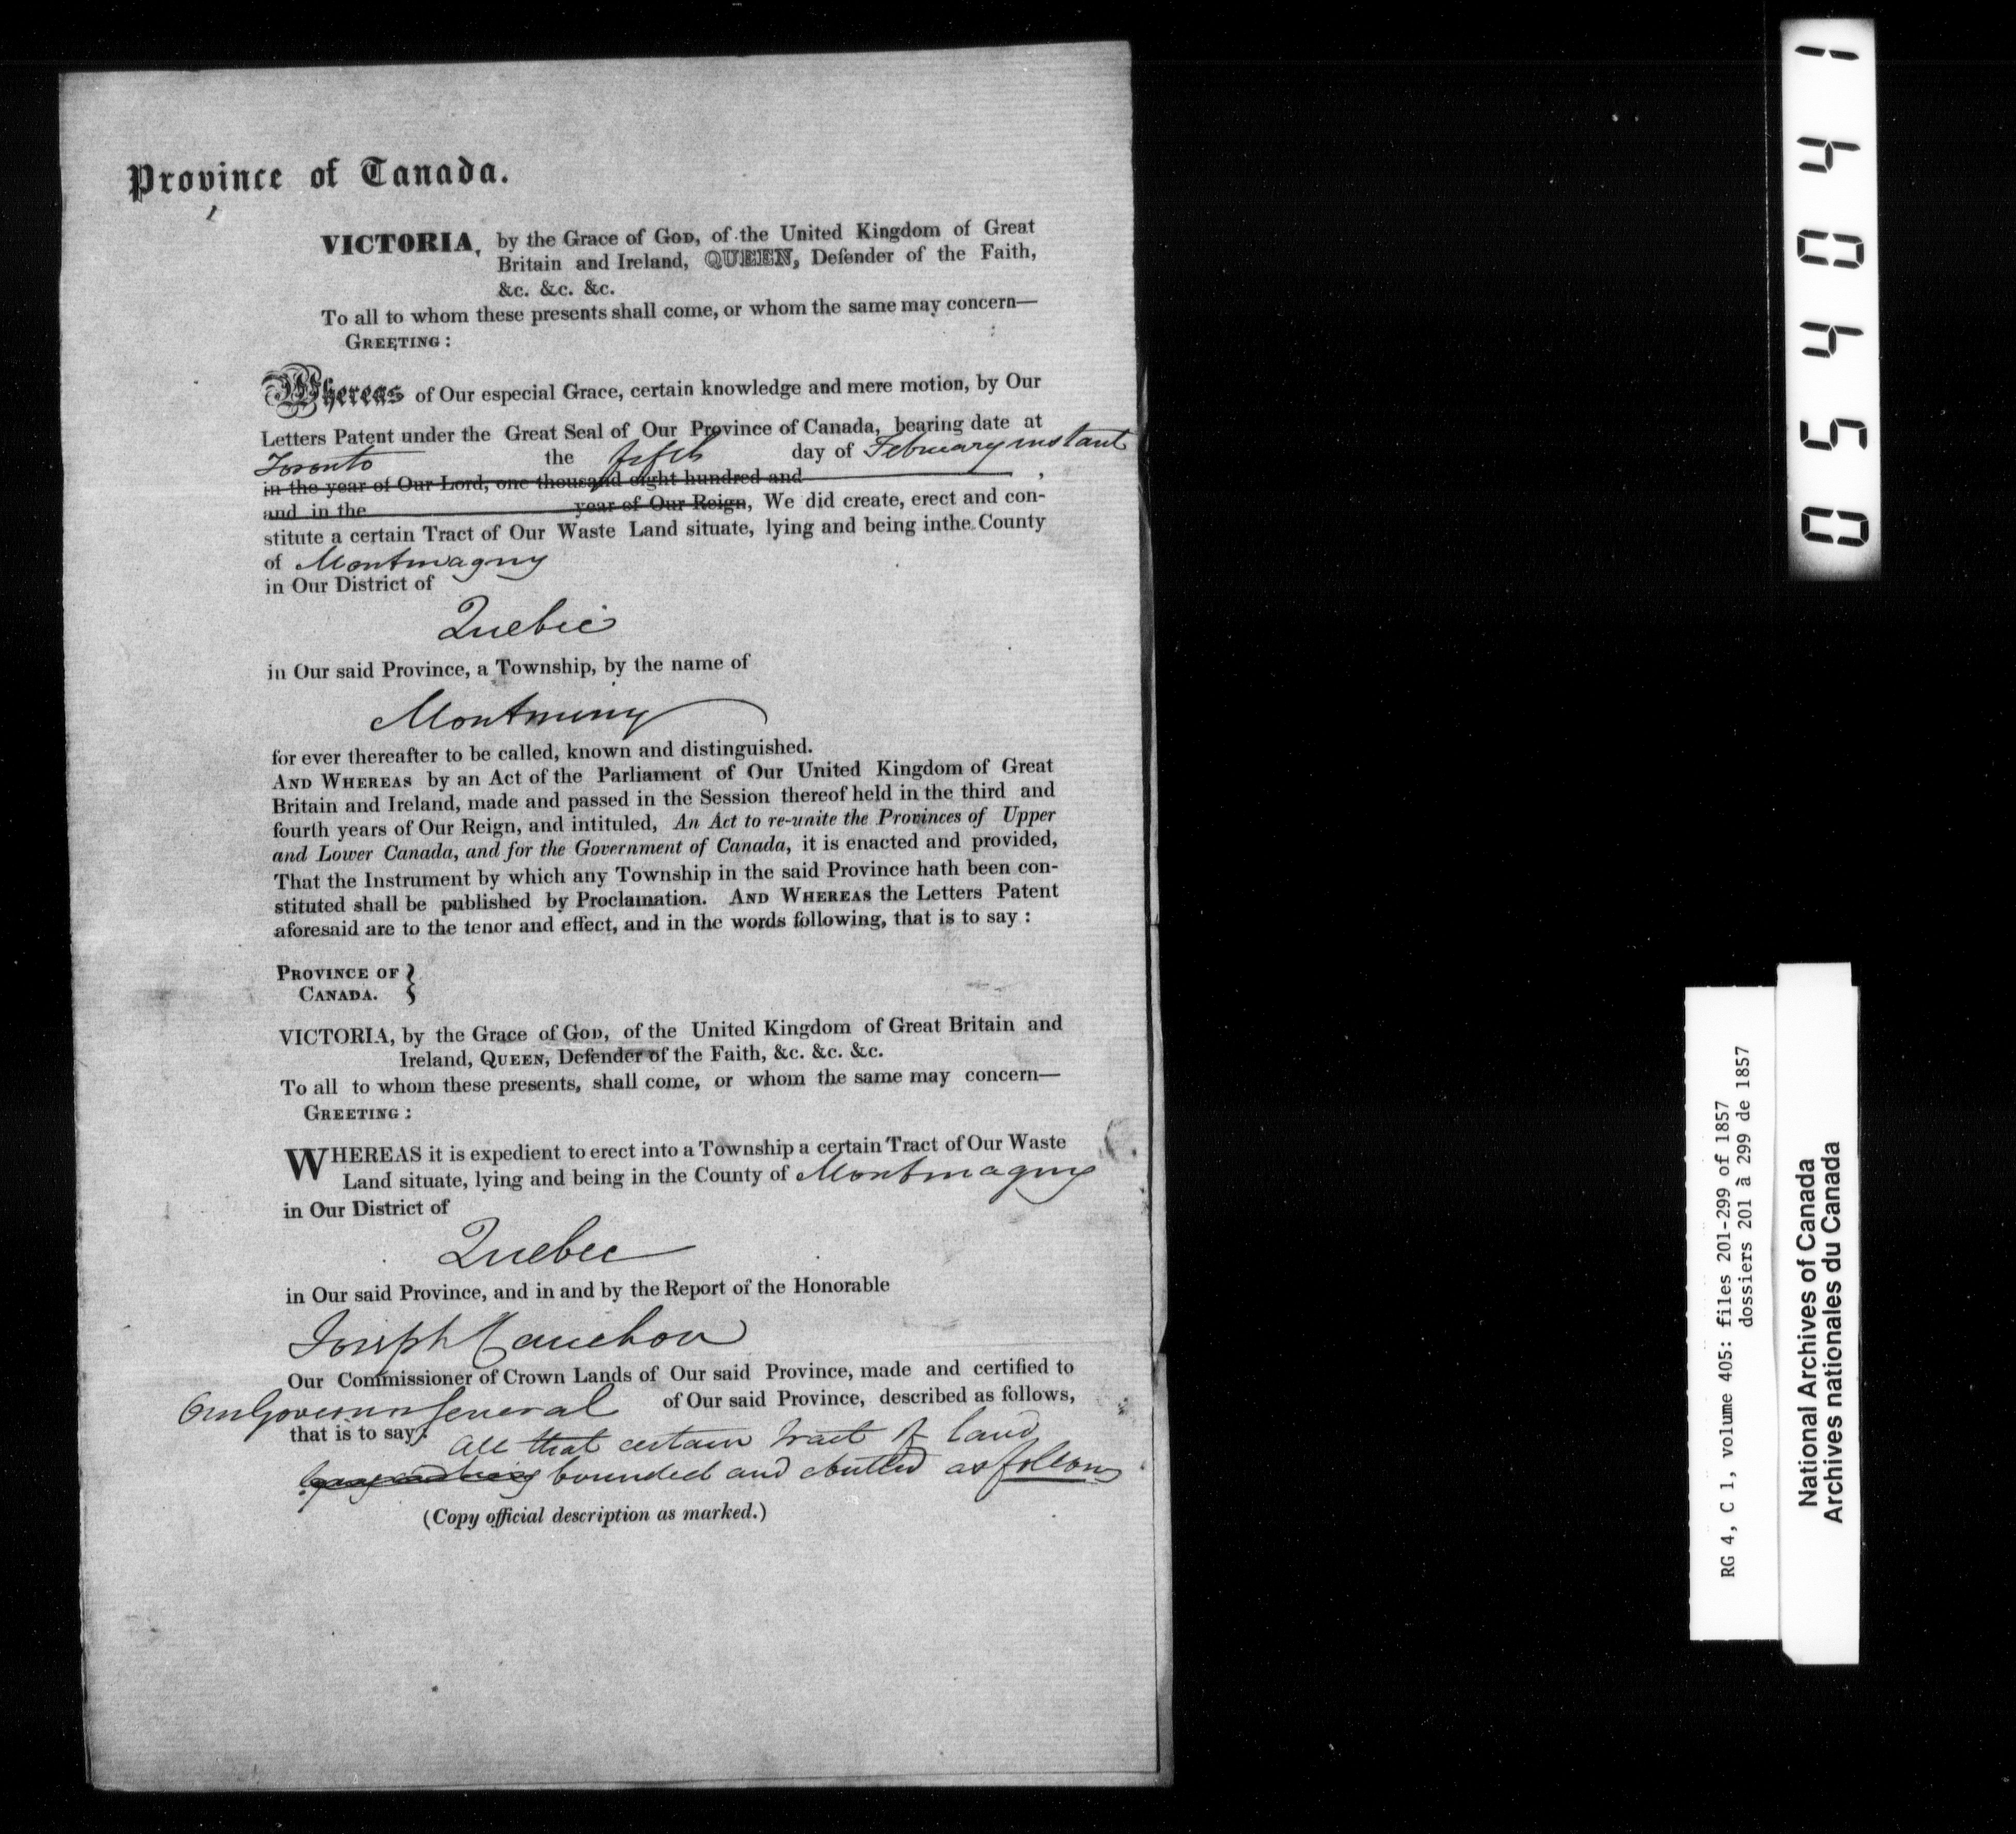 Province of Canada.
VICTORIA, by the Grace of GOD, of the United Kingdom of Great
Britain and Ireland, QUEEN, Defender of the Faith,
&c. &c. &c.
To all to whom these presents shall come, or whom the same may concern—
GREETING:
Whereas of Our especial Grace, certain knowledge and mere motion, by Our
Letters Patent under the Great Seal of Our Province of Canada, bearing date at
Toronto the fifth day of February instant
in the year of Our Lord, one thousand eight hundred and ,
and in the year of Our Reign, We did create, erect and con-
stitute a certain Tract of Our Waste Land situate, lying and being inthe County
of Montmagny
in Our District of
Quebec
in Our said Province, a Township, by the name of
Montminy
for ever thereafter to be called, known and distinguished.
AND WHEREAS by an Act of the Parliament of Our United Kingdom of Great
Britain and Ireland, made and passed in the Session thereof held in the third and
fourth years of Our Reign, and intituled, An Act to re-unite the Provinces of Upper
and Lower Canada, and for the Government of Canada, it is enacted and provided,
That the Instrument by which any Township in the said Province hath been con-
stituted shall be published by Proclamation. AND WHEREAS the Letters Patent
aforesaid are to the tenor and effect, and in the words following, that is to say:
PROVINCE OF }
CANADA.
VICTORIA, by the Grace of GOD, of the United Kingdom of Great Britain and
Ireland, QUEEN, Defender of the Faith, &c. &c. &c.
To all to whom these presents, shall come, or whom the same may concern—
GREETING:
WHEREAS it is expedient to erect into a Township a certain Tract of Our Waste
Land situate, lying and being in the County of Montmagny
in Our District of
Quebec
in Our said Province, and in and by the Report of the Honorable
Joseph Cauchon
Our Commissioner of Crown Lands of Our said Province, made and certified to
Our Governor General of Our said Province, described as follows,
that is to say: All that certain tract of land
bounded and abutted as follows
(Copy official description as marked.)
0 5 4 0 4 1
RG 4, C 1, volume 405: files 201-299 of 1857
dossiers 201 à 299 de 1857
National Archives of Canada
Archives nationales du Canada